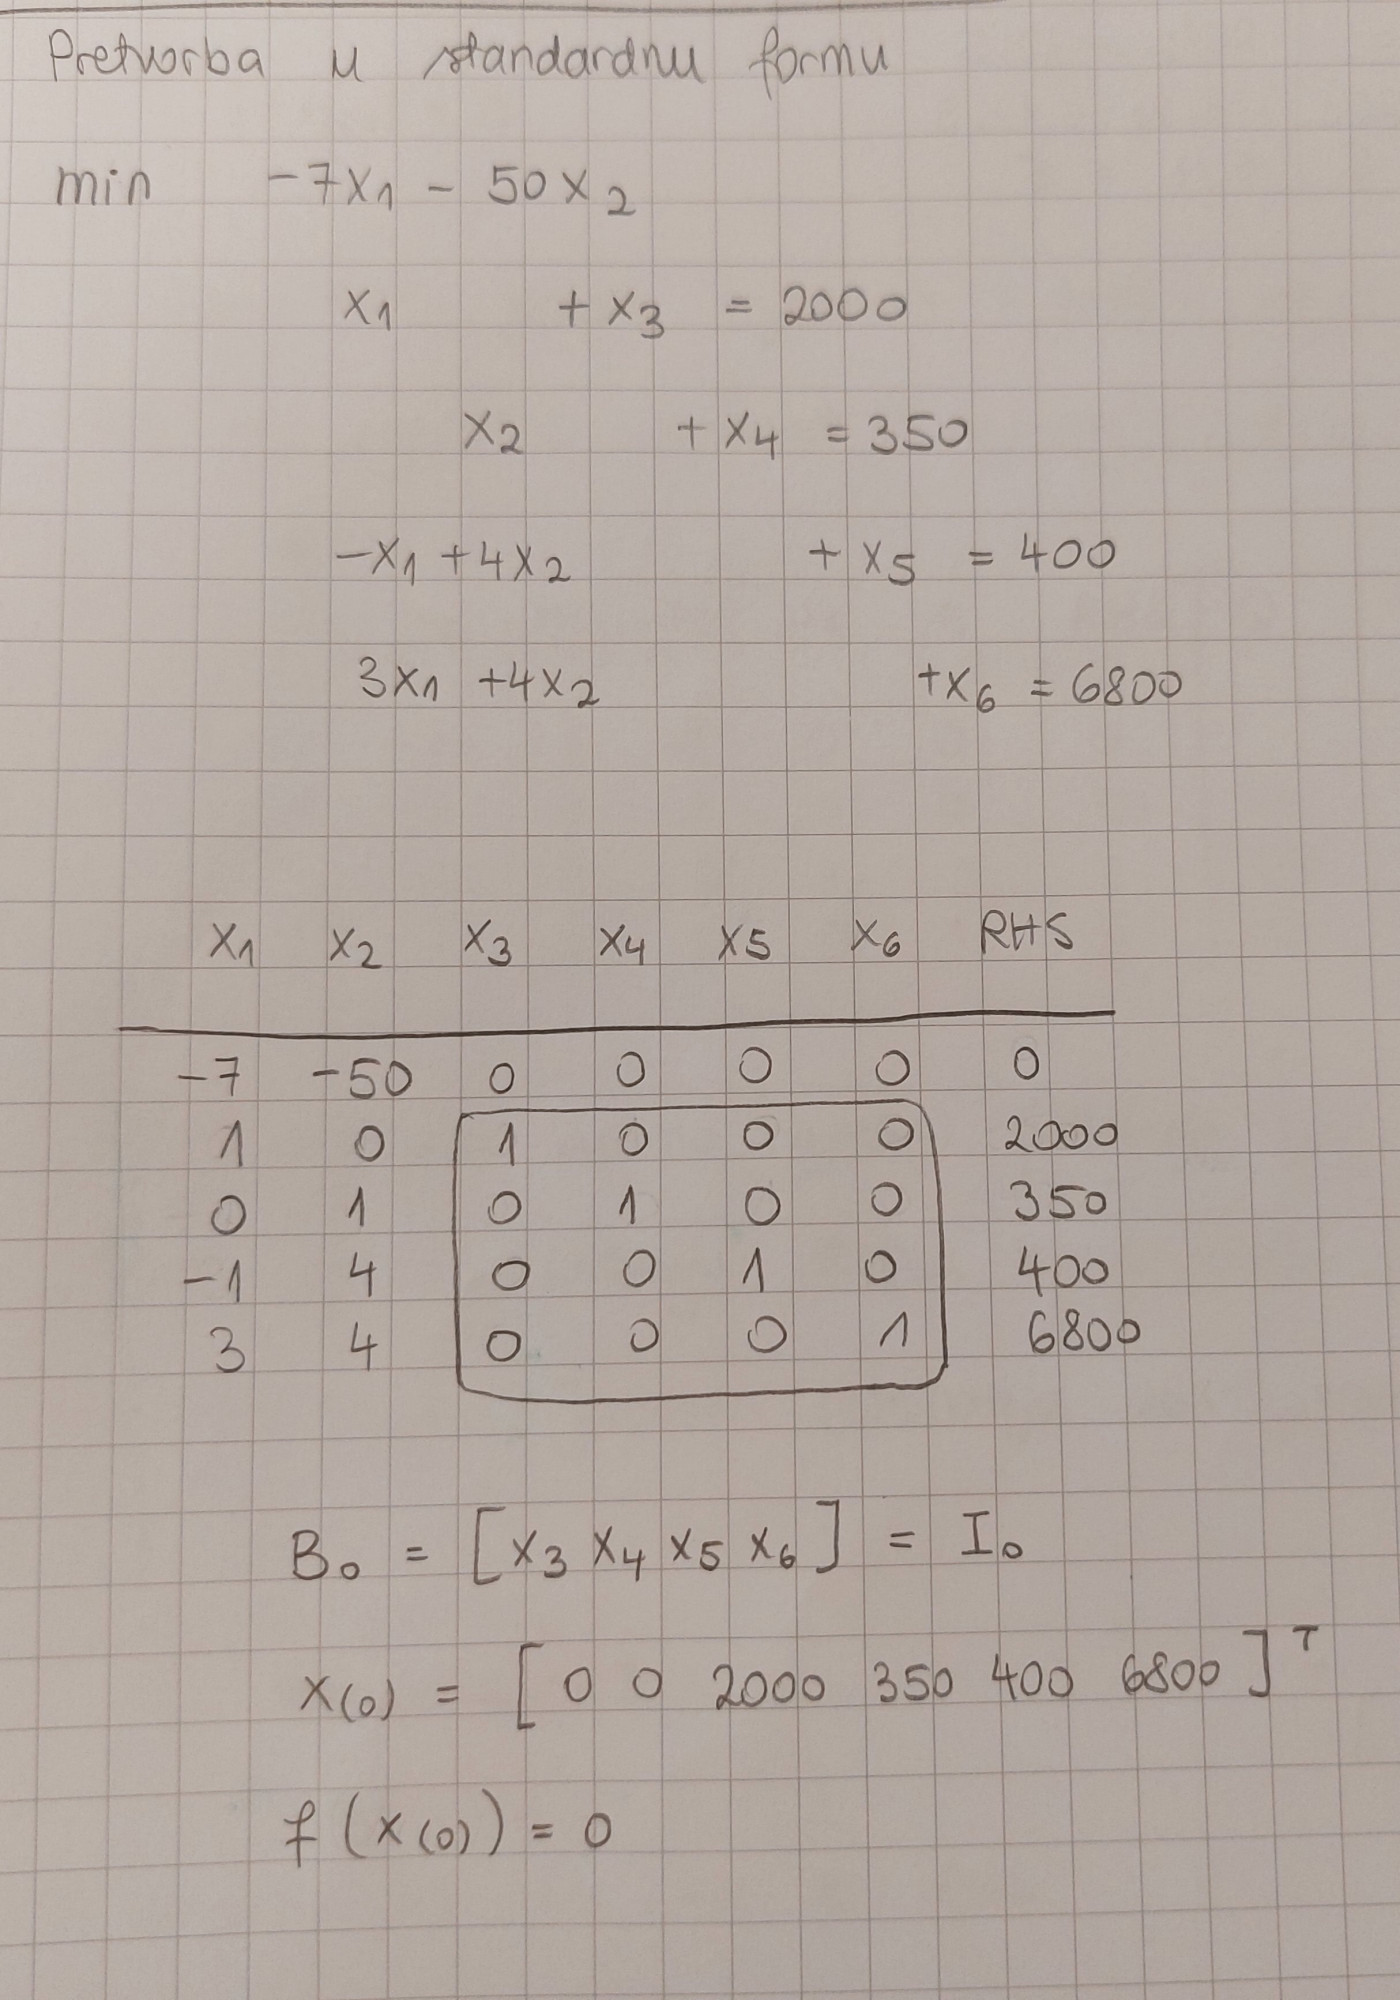 Pretvorba u standardnu formu
min -7x₁ - 50x₂
x₁ + x₃ = 2000
x₂ + x₄ = 350
-x₁ + 4x₂ + x₅ = 400
3x₁ + 4x₂ + x₆ = 6800
x₁ x₂ x₃ x₄ x₅ x₆ RHS
-7 -50 0 0 0 0 0
1 0 1 0 0 0 2000
0 1 0 1 0 0 350
-1 4 0 0 1 0 400
3 4 0 0 0 1 6800
B₀ = [x₃ x₄ x₅ x₆] = I₀
x₍₀₎ = [0 0 2000 350 400 6800]ᵀ
f(x₍₀₎) = 0